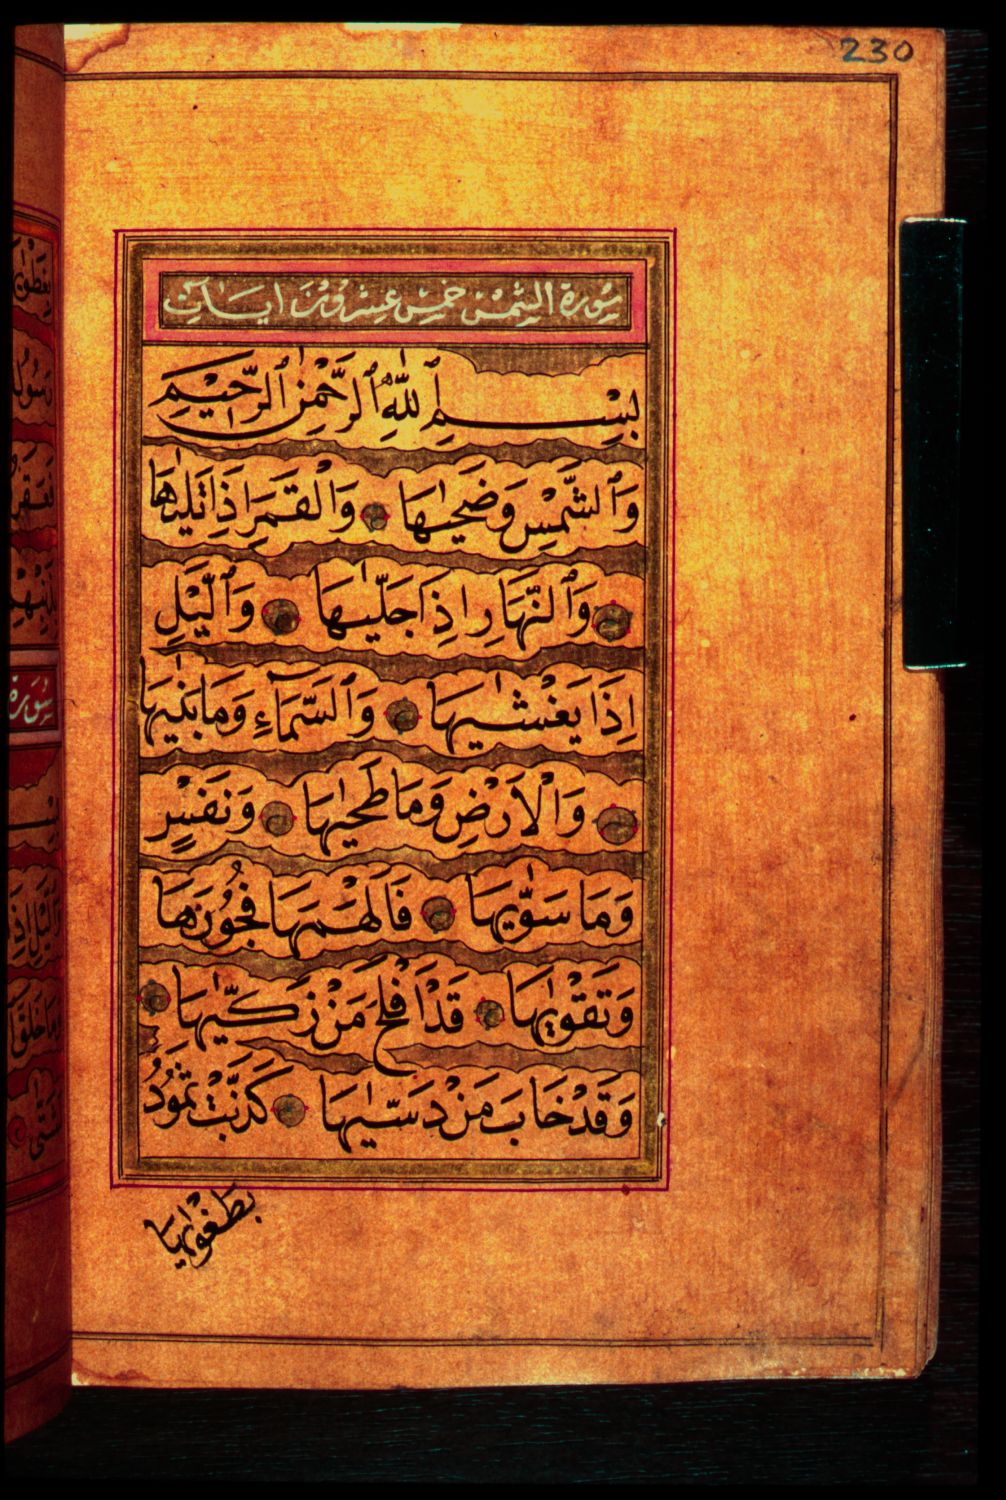 230
سورة الشمس خمس عشرون ايات
بِسْمِ ٱللَّهِ ٱلرَّحْمٰنِ ٱلرَّحِيمِ
وَٱلشَّمْسِ وَضُحٰيهَا وَالْقَمَرِ اِذَا تَلٰيهَا
وَٱلنَّهَارِ اِذَا جَلّٰيهَا وَٱلَّيْلِ
اِذَا يَغْشٰيهَا وَٱلسَّمَآءِ وَمَا بَنٰيهَا
وَالْاَرْضِ وَمَا طَحٰيهَا وَنَفْسٍ
وَمَا سَوّٰيهَا فَاَلْهَمَهَا فُجُورَهَا
وَتَقْوٰيهَا قَدْ اَفْلَحَ مَنْ زَكّٰيهَا
وَقَدْ خَابَ مَنْ دَسّٰيهَا كَذَّبَتْ ثَمُودُ
بطغويها